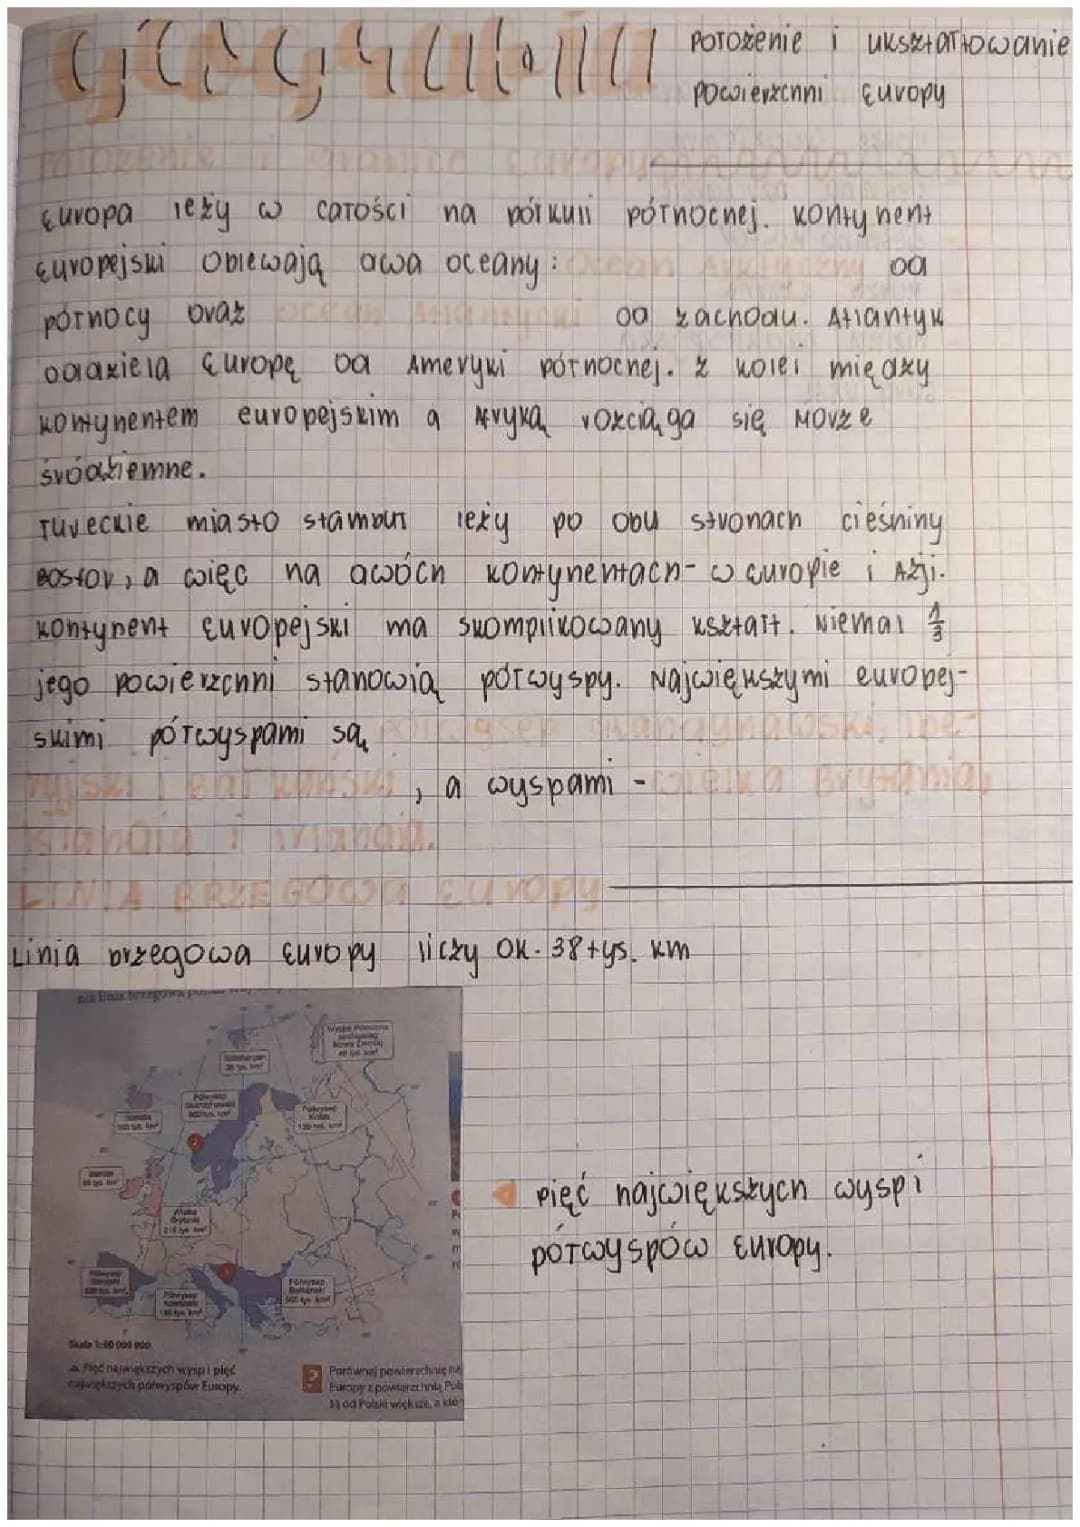 Geografia
Położenie i ukształtowanie
powierzchni Europy
Położenie i granice Europy
Europa leży w całości na półkuli północnej. Kontynent
Europejski oblewają dwa oceany: Ocean Arktyczny od
północy oraz ocean Atlantycki od zachodu. Atlantyk
oddziela Europę od Ameryki północnej. Z kolei między
kontynentem europejskim a Afryką rozciąga się Morze
śródziemne.
Tureckie miasto stambuł leży po obu stronach cieśniny
Bosfor, a więc na dwóch kontynentach - w europie i Azji.
Kontynent Europejski ma skomplikowany kształt. Niemal 1/3
jego powierzchni stanowią półwyspy. Największymi europej-
skimi półwyspami są półwysep skandynawski, Ibe-
ryjski i Bałkański, a wyspami - wielka Brytania,
islandia i irlandia.
LINIA BRZEGOWA EUROPY
Linia brzegowa Europy liczy ok. 38 tys. km
Wyspa Północna
Nowej Ziemi
48 tys. km²
Spitsbergen
38 tys. km²
Półwysep
Skandynawski
800 tys. km²
Półwysep
Kolski
Islandia
103 tys. km²
Irlandia
Wielka
Brytania
Półwysep
Iberyjski
Półwysep
Apeniński
Półwysep
Bałkański
500 tys. km²
Skala 1:60 000 000
Pięć największych wysp i pięć
największych półwyspów Europy.
? Porównaj powierzchnię
Europy z powierzchnią
są od Polski większe, a
Pięć największych wysp i
półwyspów Europy.